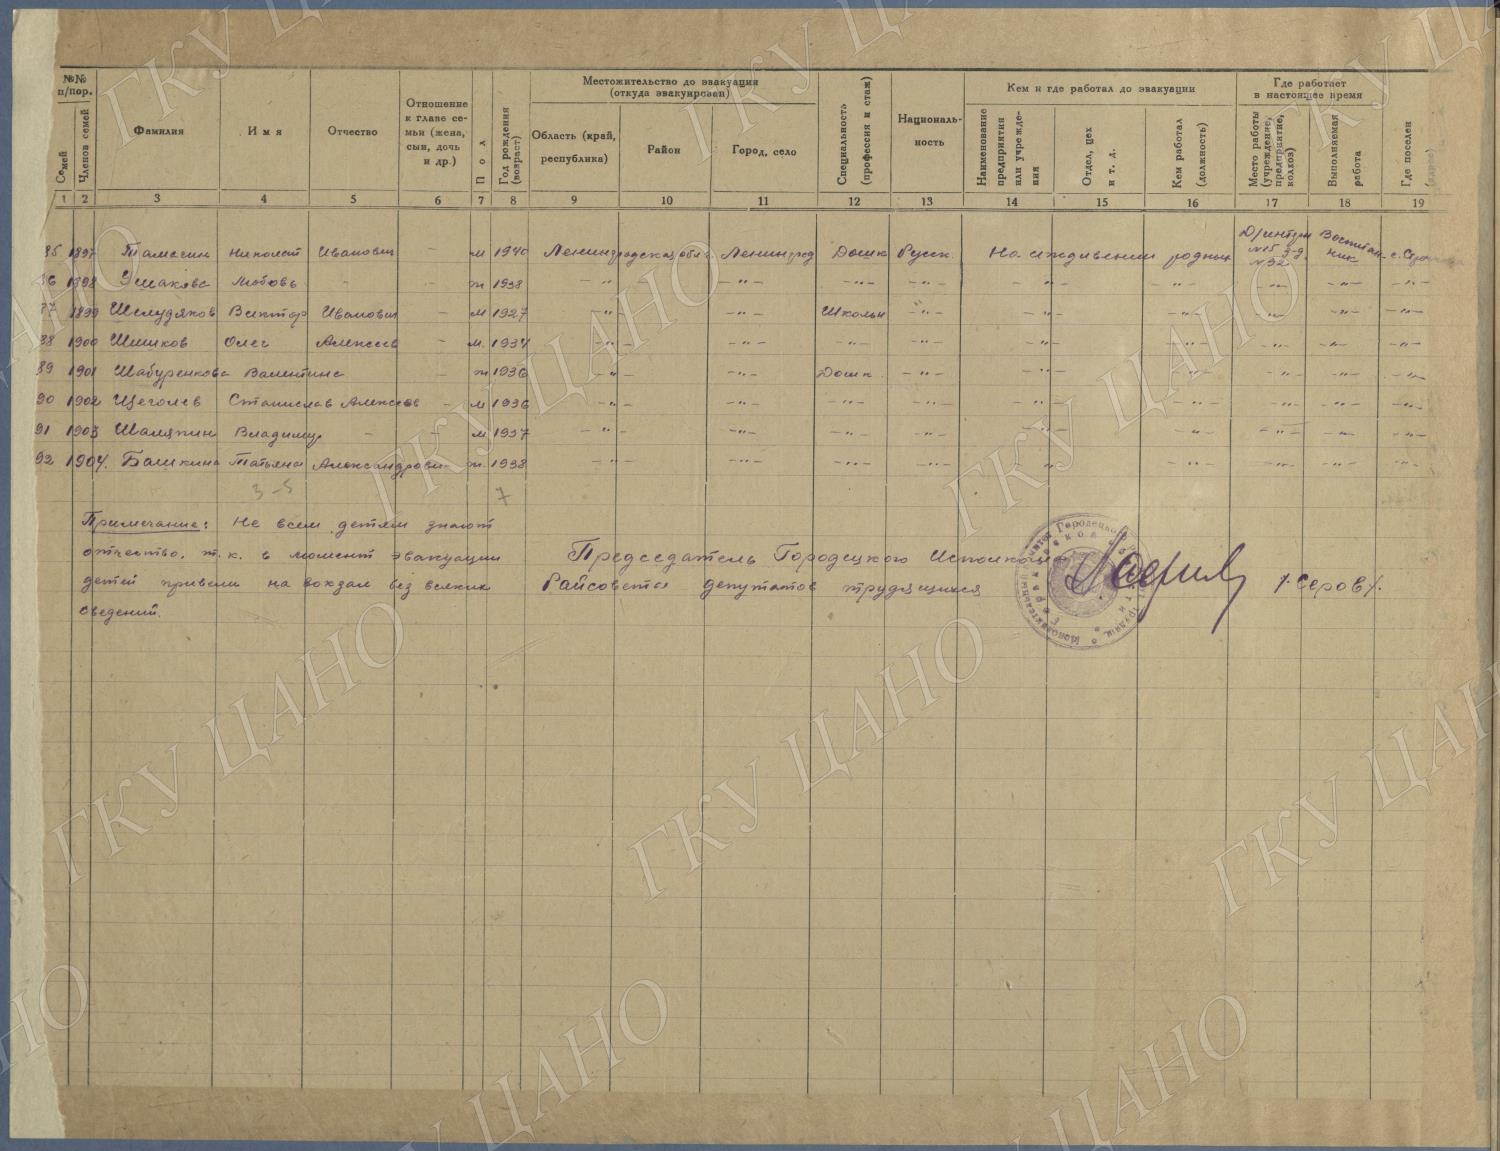 №№ п/пор.
Семей
Членов семей
Фамилия
Имя
Отчество
Отношение к главе семьи (жена, сын, дочь и др.)
Пол
Год рождения (возраст)
Местожительство до эвакуации (откуда эвакуирован)
Область (край, республика)
Район
Город, село
Специальность (профессия и стаж)
Национальность
Кем и где работал до эвакуации
Наименование предприятия или учреждения
Отдел, цех и т. д.
Кем работал (должность)
Где работает в настоящее время
Место работы (учреждение, предприятие, колхоз)
Выполняемая работа
Где поселен (адрес)
1 2 3 4 5 6 7 8 9 10 11 12 13 14 15 16 17 18 19
85 1897 Николай Иванович - м 1940 Ленинградская обл. Ленинград Дошк Русск. На иждивении родных Д/интерн №15 з-д №92 Воспитанник
86 1898 Ушакова Любовь - - ж 1938 -"- -"- -"- -"- -"- -"- -"- -"- -"-
87 1899 Шелудяков Виктор Иванович - м 1927 -"- -"- Школьн -"- -"- -"- -"- -"- -"-
88 1900 Шишков Олег Алексеев - м. 1934 -"- -"- -"- -"- -"- -"- -"- -"- -"-
89 1901 Шабуренкова Валентина - ж 1936 -"- -"- Дошк. -"- -"- -"- -"- -"- -"-
90 1902 Щеголев Станислав Алексеев - м 1936 -"- -"- -"- -"- -"- -"- -"- -"- -"-
91 1903 Шаляпин Владимир - - м 1937 -"- -"- -"- -"- -"- -"- -"- -"- -"-
92 1904. Башкина Татьяна Александровн - ж. 1938 -"- -"- -"- -"- -"- -"- -"- -"- -"-
3-5 7
Примечание: Не всем детям знают
отчество, т.к. в момент эвакуации
детей привели на вокзал без всяких
сведений.
Председатель Городецкого Исполкома
Райсовета депутатов трудящихся
/Серов/.
ГКУ ЦАНО